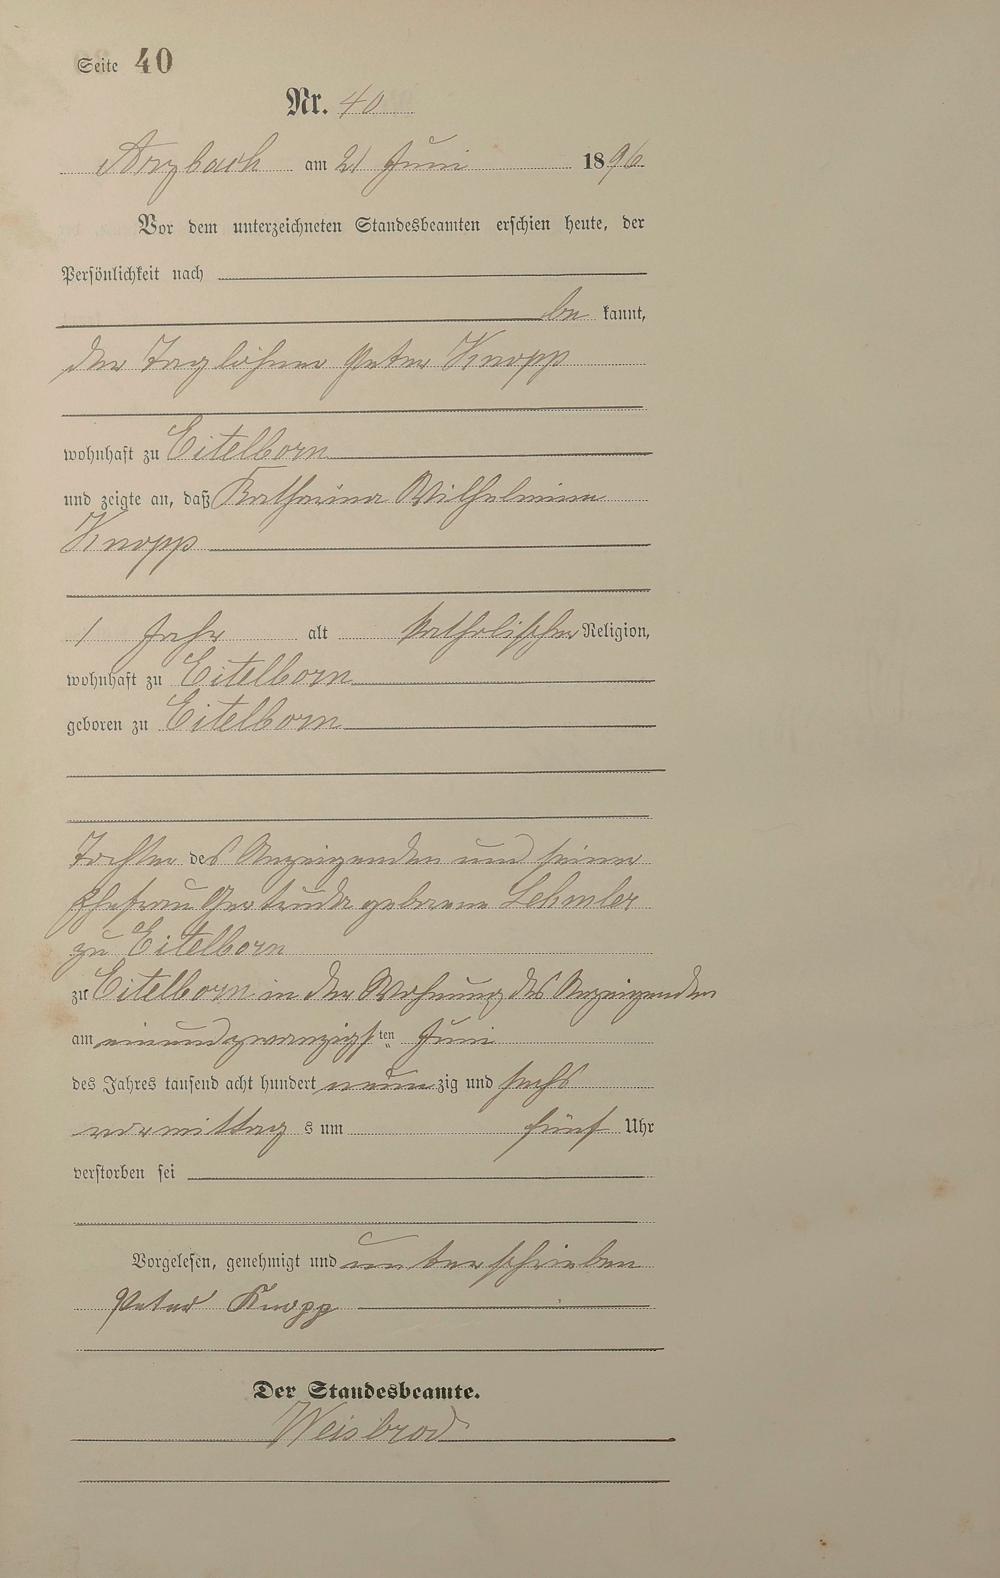 Seite 40
Nr. 40
Arzbach am 21 Juni 1896
Vor dem unterzeichneten Standesbeamten erschien heute, der
Persönlichkeit nach
be kannt,
der Taglöhner Peter Knopp
wohnhaft zu Eitelborn
und zeigte an, daß Katharina Wilhelmine
Knopp
1 Jahr alt katholischer Religion,
wohnhaft zu Eitelborn
geboren zu Eitelborn
Tochter des Anzeigenden und seiner
Ehefrau Gertrude geborene Lehmler
zu Eitelborn
zu Eitelborn in der Wohnung des Anzeigenden
am einundzwanzigsten Juni
des Jahres tausend acht hundert neunzig und sechs
vormittags um fünf Uhr
verstorben sei
Vorgelesen, genehmigt und unterschrieben
Peter Knopp
Der Standesbeamte.
Weisbrod